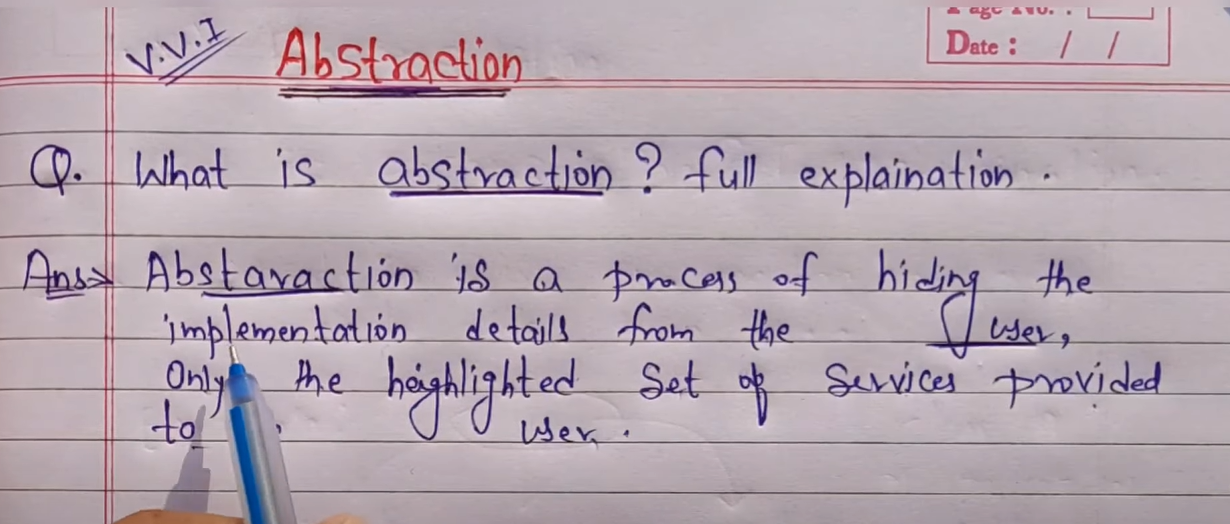 V.V.I Abstraction
Date : / /
Q. What is abstraction ? full explaination .
Ans⇒ Abstaraction is a process of hiding the
implementation details from the user,
Only the heighlighted Set of Services provided
to user .